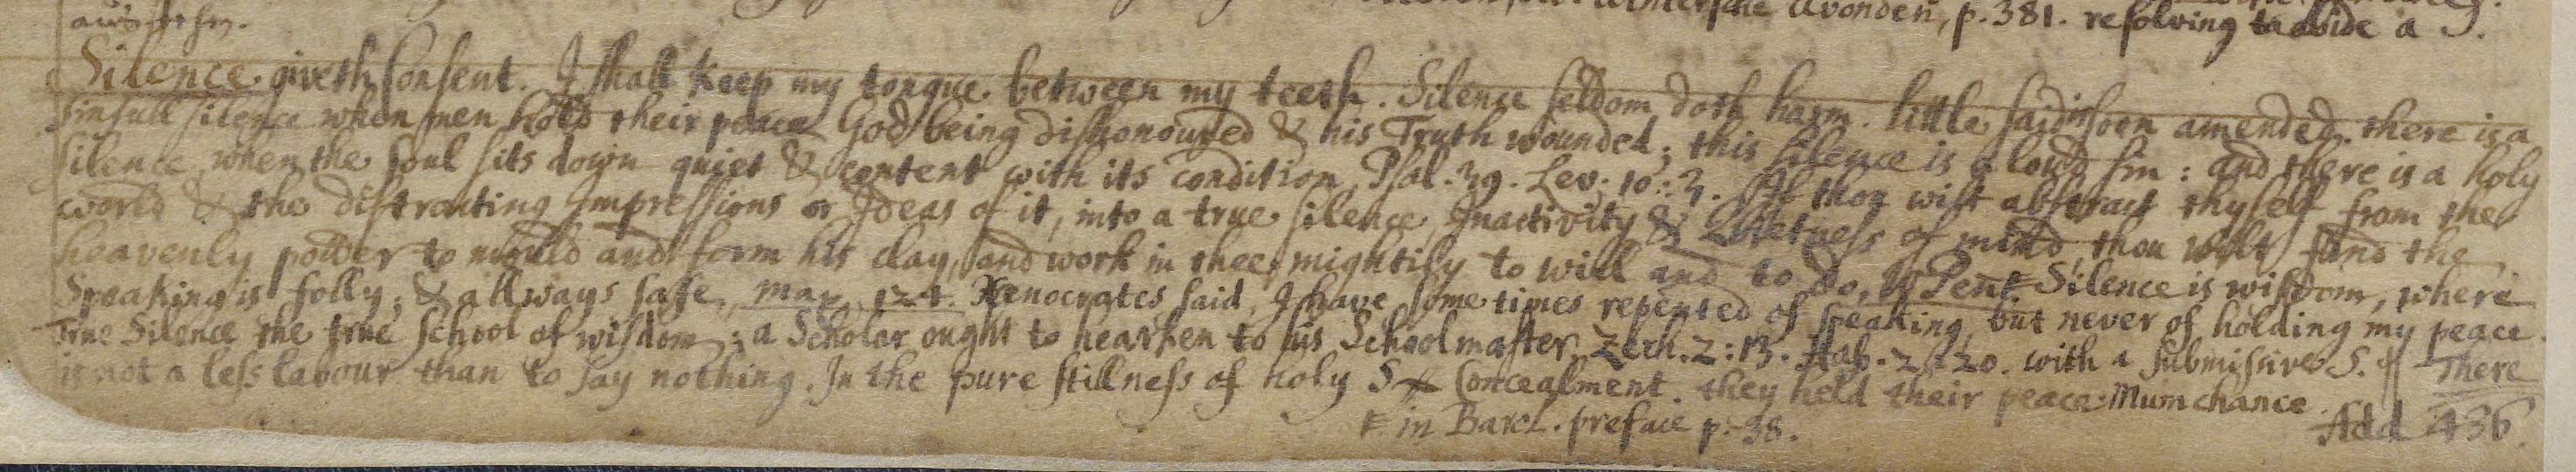 Winterse Avonden, p. 381. resolving to abide a S.
Silence giveth Consent. I shall keep my tongue between my teeth. Silence seldom doth harm. little said is soon amended. there is a
sinfull silence when men hold their peace God being dishonoured & his Truth wounded; this silence is a loud sin: and there is a holy
silence, when the soul sits down quiet & content with its condition, Psal. 39. Lev. 10:3. If thou wilt abstract thyself from the
world & the distracting Impressions or Ideas of it, into a true silence, Inactivity & Quietness of mind, thou wilt find the
heavenly power to mould and form his clay, and work in thee mightily to will and to do, W Pent. Silence is wisdom, where
Speaking is folly; & allways safe, max. 124. Xenocrates said, I have some times repented of speaking, but never of holding my peace.
True Silence the true School of wisdom; a Scholar ought to hearken to his Schoolmaster, Zech. 2:13. Hab. 2:20. with a submissive S. ¶ There
is not a less labour than to say nothing. In the pure stillness of holy S Concealment. they held their peace. Mumchance
in Barcl. preface p. 38.
Add 436.